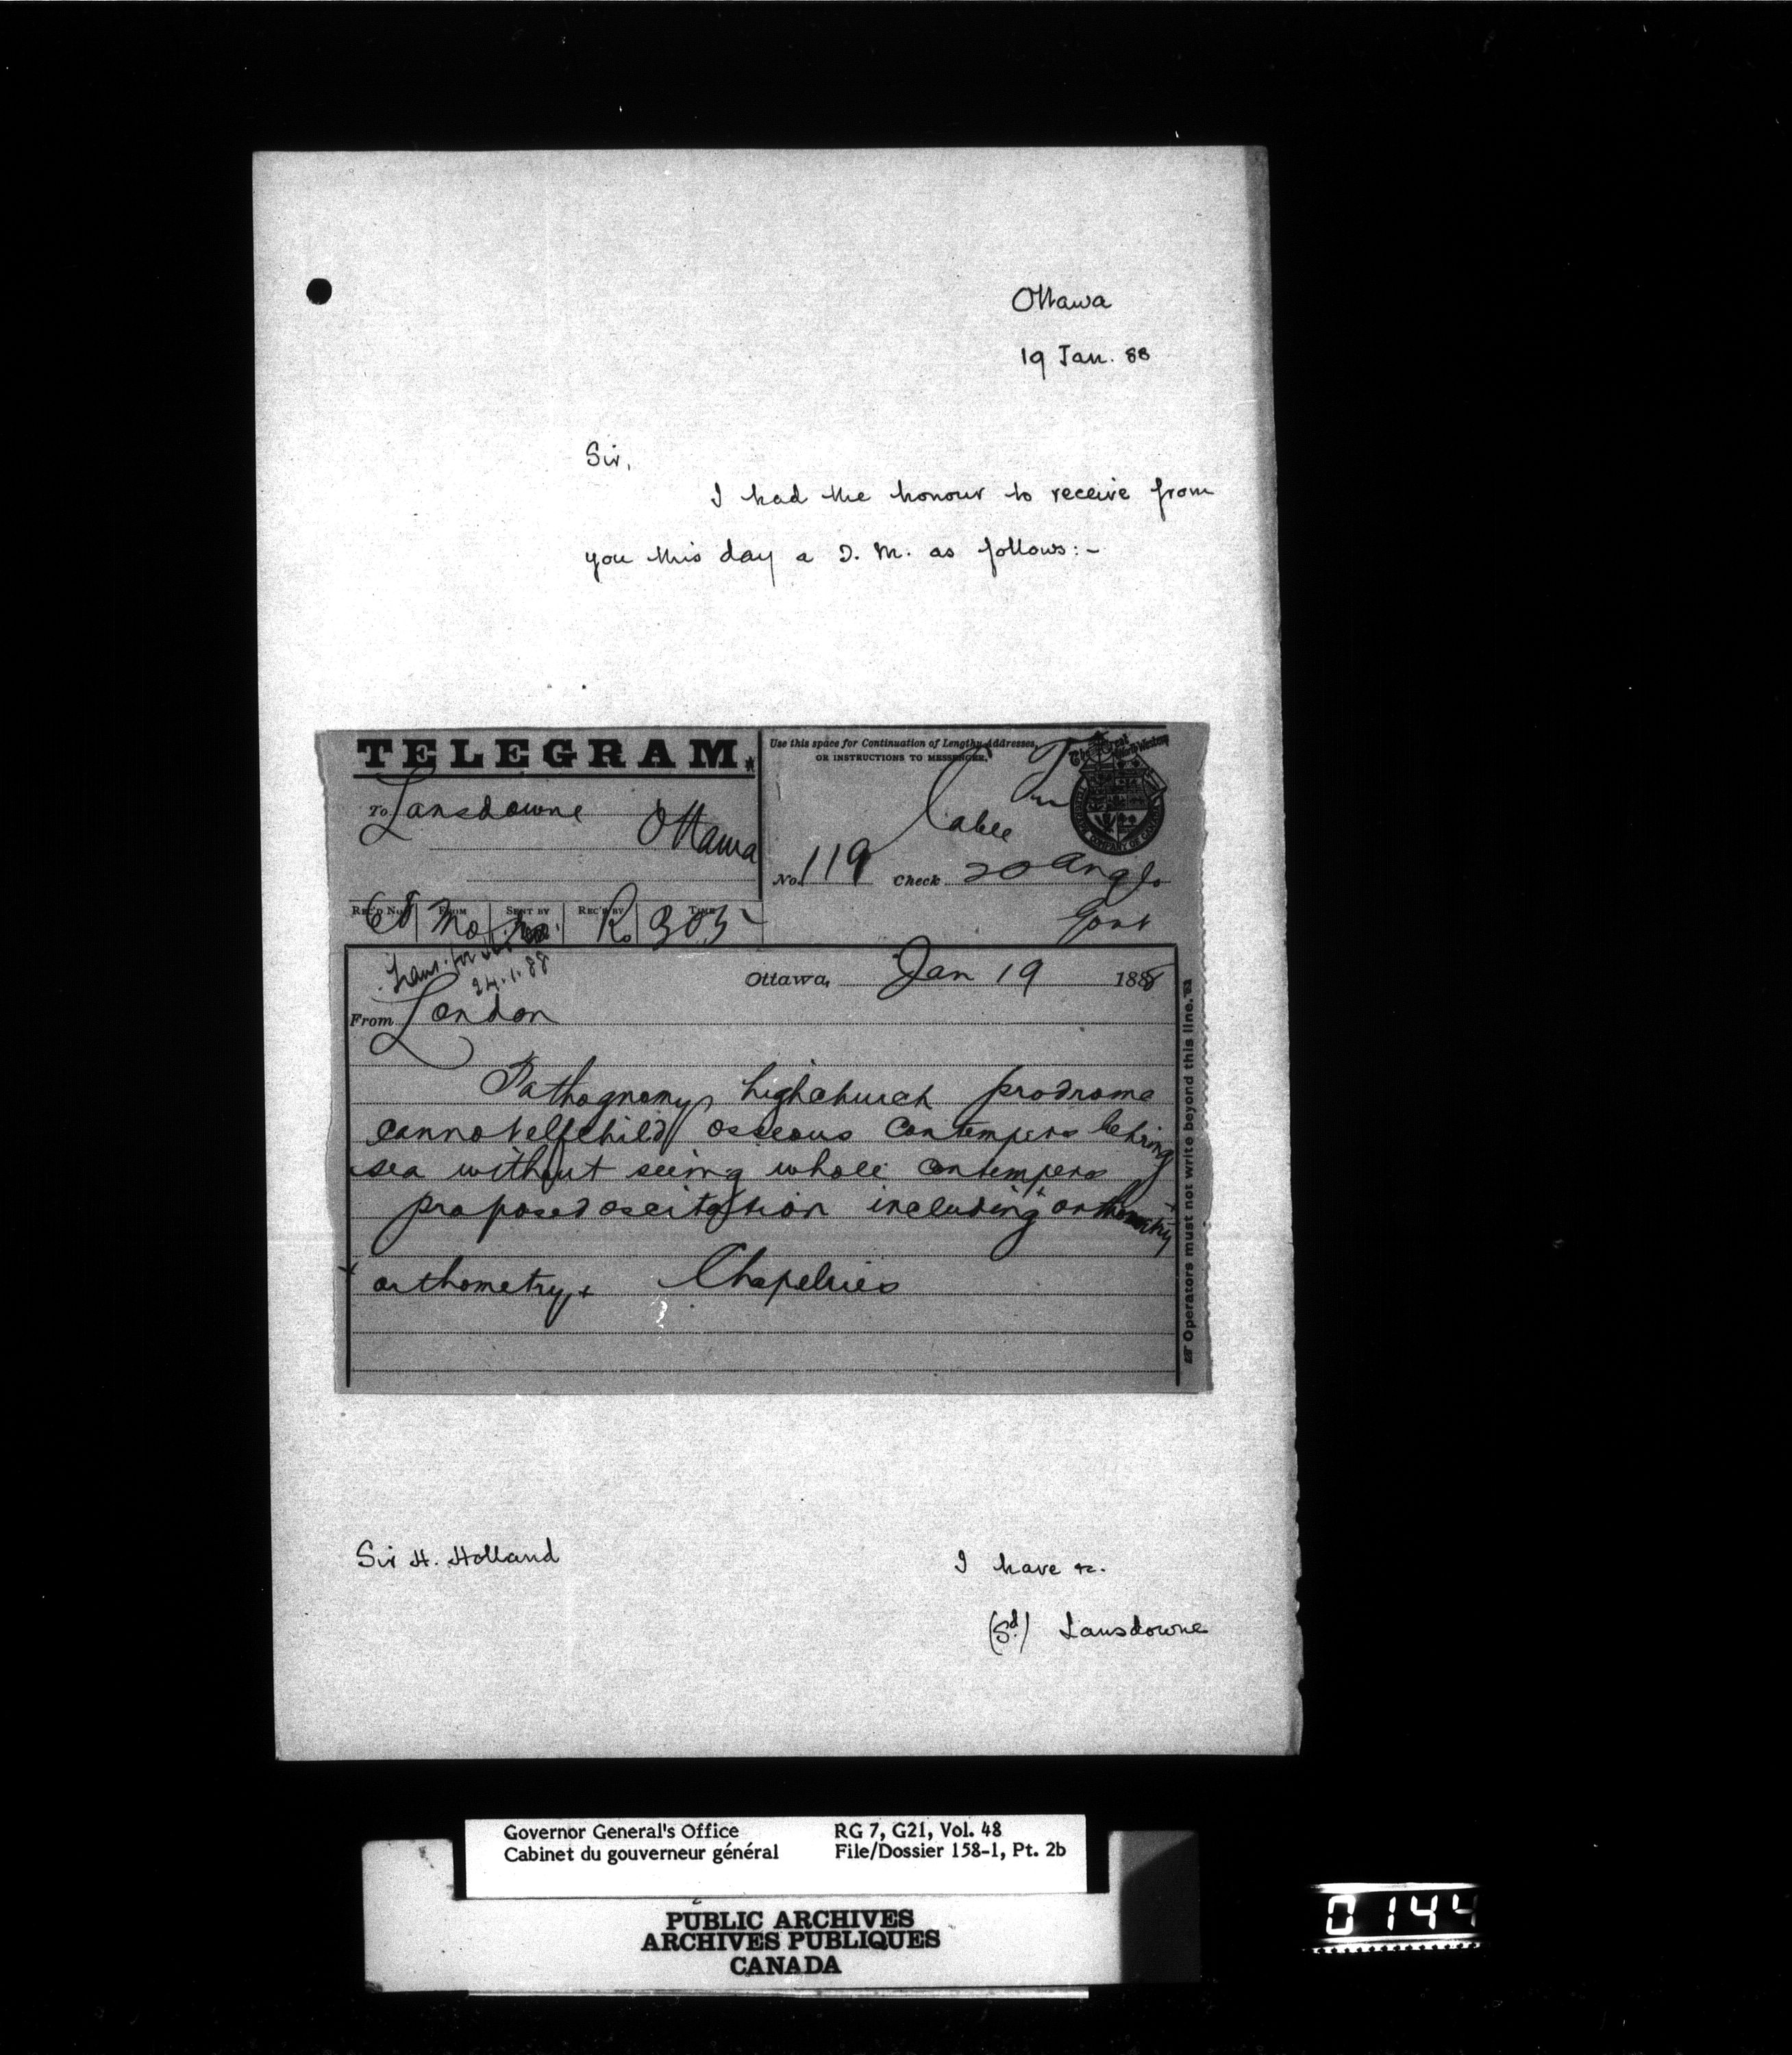 Ottawa
19 Jan. 88
Sir,
I had the honour to receive from
you this day a D. M. as follows:-
TELEGRAM.
To Lansdowne
Ottawa
Use this space for Continuation of Lengthy Addresses,
OR INSTRUCTIONS TO MESSENGER.
Cable
No. 119 Check 20 Anglo
Govt
REC'D No. FROM SENT BY REC'D BY TIME
Mo R 305
24.1.88
Ottawa, Jan 19 1888
From London
Pathognomy highchurch prodrome
cannot elfchild osseous contempers behring
sea without seeing whole contempers
proposed oscitation including + orthometry
+ orthometry + Chapelries
Operators must not write beyond this line.
Sir H. Holland
I have &c.
(Sd) Lansdowne
Governor General's Office
Cabinet du gouverneur général
RG 7, G21, Vol. 48
File/Dossier 158-1, Pt. 2b
PUBLIC ARCHIVES
ARCHIVES PUBLIQUES
CANADA
0144